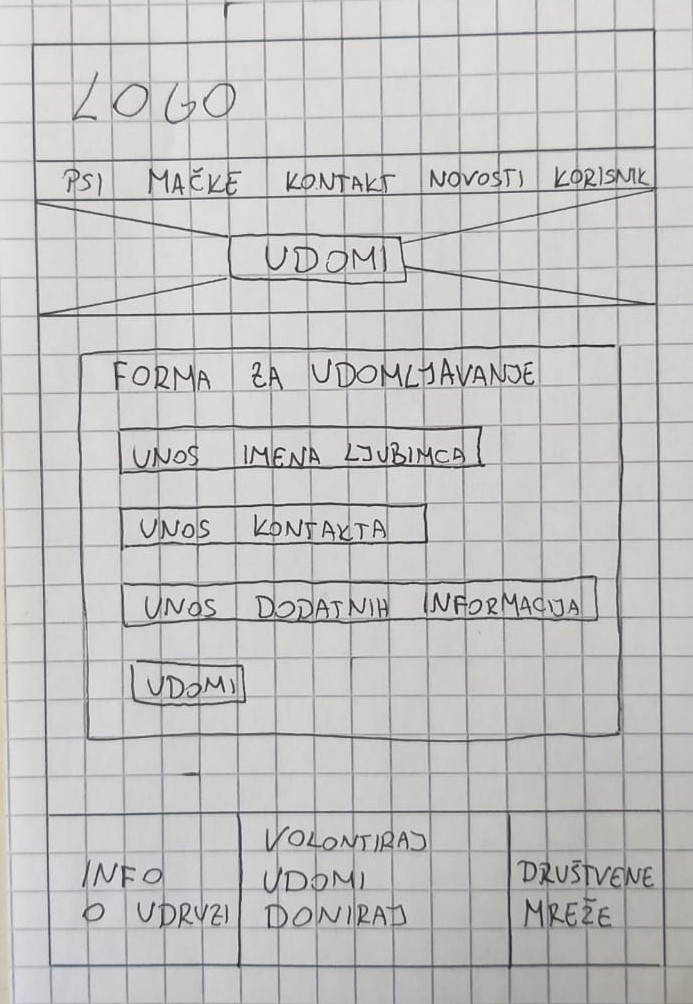 LOGO
PSI MAČKE KONTAKT NOVOSTI KORISNIK
UDOMI
FORMA ZA UDOMLJAVANJE
UNOS IMENA LJUBIMCA
UNOS KONTAKTA
UNOS DODATNIH INFORMACIJA
UDOMI
INFO
O UDRUZI
VOLONTIRAJ
UDOMI
DONIRAJ
DRUŠTVENE
MREŽE